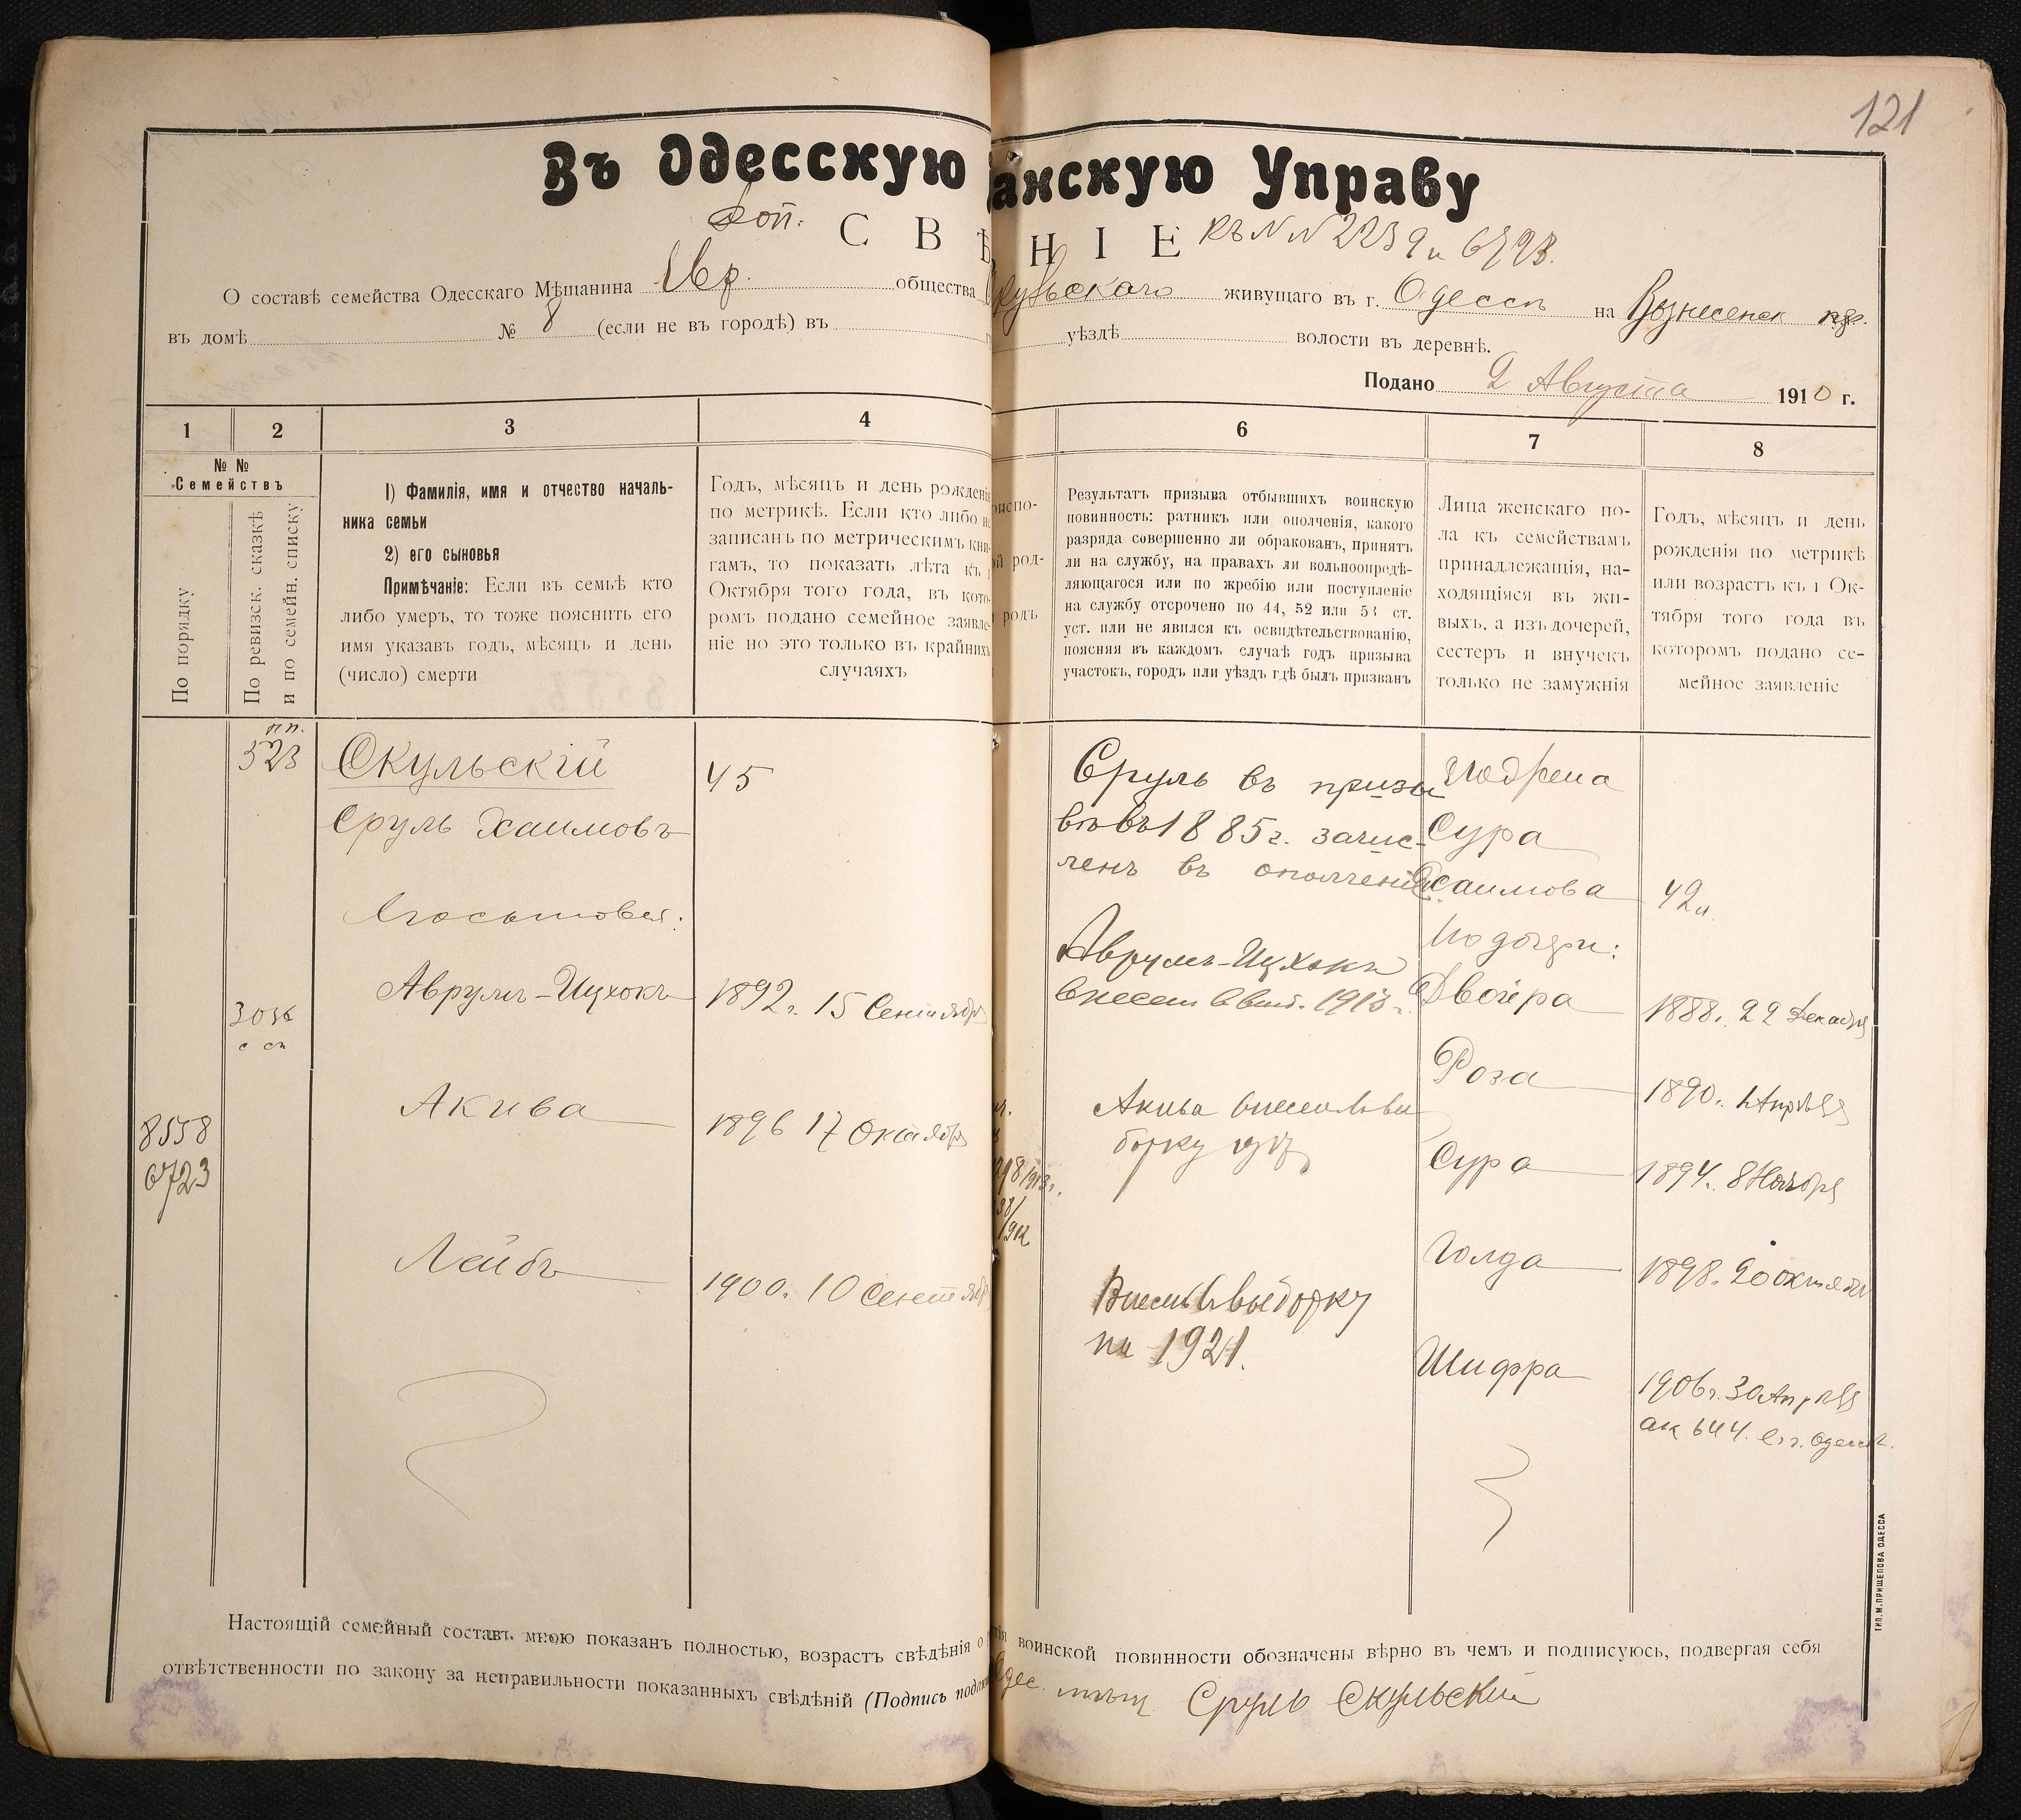 121
Въ Одесскую анскую Управу
Доп. СВѢ НІЕ къ №№ 2239 и 6723.
О составѣ семейства Одесскаго Мѣщанина Евр. общества Скульскаго живущаго въ г. Одессѣ на Вознесенск пер.
въ домѣ № 8 (если не въ городѣ) въ уѣздѣ волости въ деревнѣ.
Подано 2 Августа 1910 г.
1 2 3 4 6 7 8
№ №
Семействъ
По порядку
По ревизск. сказкѣ
и по семейн. списку
1) Фамилія, имя и отчество началь-
ника семьи
2) его сыновья
Примѣчаніе: Если въ семьѣ кто
либо умеръ, то тоже пояснить его
имя указавъ годъ, мѣсяцъ и день
(число) смерти
Годъ, мѣсяцъ и день рожденія
по метрикѣ. Если кто либо не
записанъ по метрическимъ кни-
гамъ, то показать лѣта къ 1
Октября того года, въ кото-
ромъ подано семейное заявле-
ніе но это только въ крайнихъ
случаяхъ
испо-
й род-
родъ
Результатъ призыва отбывшихъ воинскую
повинность: ратникъ или ополченія, какого
разряда совершенно ли обракованъ, принятъ
ли на службу, на правахъ ли вольноопредѣ-
ляющагося или по жребію или поступленіе
на службу отсрочено по 44, 52 или 53 ст.
уст. или не явился къ освидѣтельствованію,
поясняя въ каждомъ случаѣ годъ призыва
участокъ, городъ или уѣздъ гдѣ былъ призванъ
Лица женскаго по-
ла къ семействамъ
принадлежащія, на-
ходящіяся въ жи-
выхъ, а изъ дочерей,
сестеръ и внучекъ
только не замужнія
Годъ, мѣсяцъ и день
рожденія по метрикѣ
или возрастъ къ 1 Ок-
тября того года въ
которомъ подано се-
мейное заявленіе
523
Скульскій
45
Сруль Хаимовъ
Сруль въ призы
вѣ въ 1885 г. зачис-
ленъ въ ополченіе
Сура
Хаимова 42 л.
Его сыновья:
Его дочери:
Аврумъ-Ицхокъ 1892 г. 15 Сентября
Аврумъ-Ицхокъ
внесен в выб. 1913 г.
Двойра 1888 г. 22 Декабря
Роза 1890 г. 1 Апрѣля
8558
6723
Акива 1896 17 Октября
Акива внесен в вы
борку 1917
Сура 1894 г. 8 Ноября
Лейбъ 1900 г. 10 Сентября
Внесенъ в выборку
на 1921.
Голда 1898 г. 20 октября
Шифра 1906 г. 30 Апрѣля
ак 644. Одесса.
Настоящій семейный составъ мною показанъ полностью, возрастъ свѣдѣнія о воинской повинности обозначены вѣрно въ чемъ и подписуюсь, подвергая себя
отвѣтственности по закону за неправильности показанныхъ свѣдѣній (Подпись Одес. мѣщ Сруль Скульский
ТИП. М. ПРИЩЕПОВА ОДЕССА